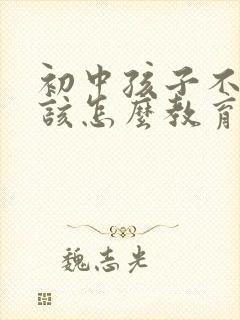 初中孩子不
該怎麼教育
魏志光